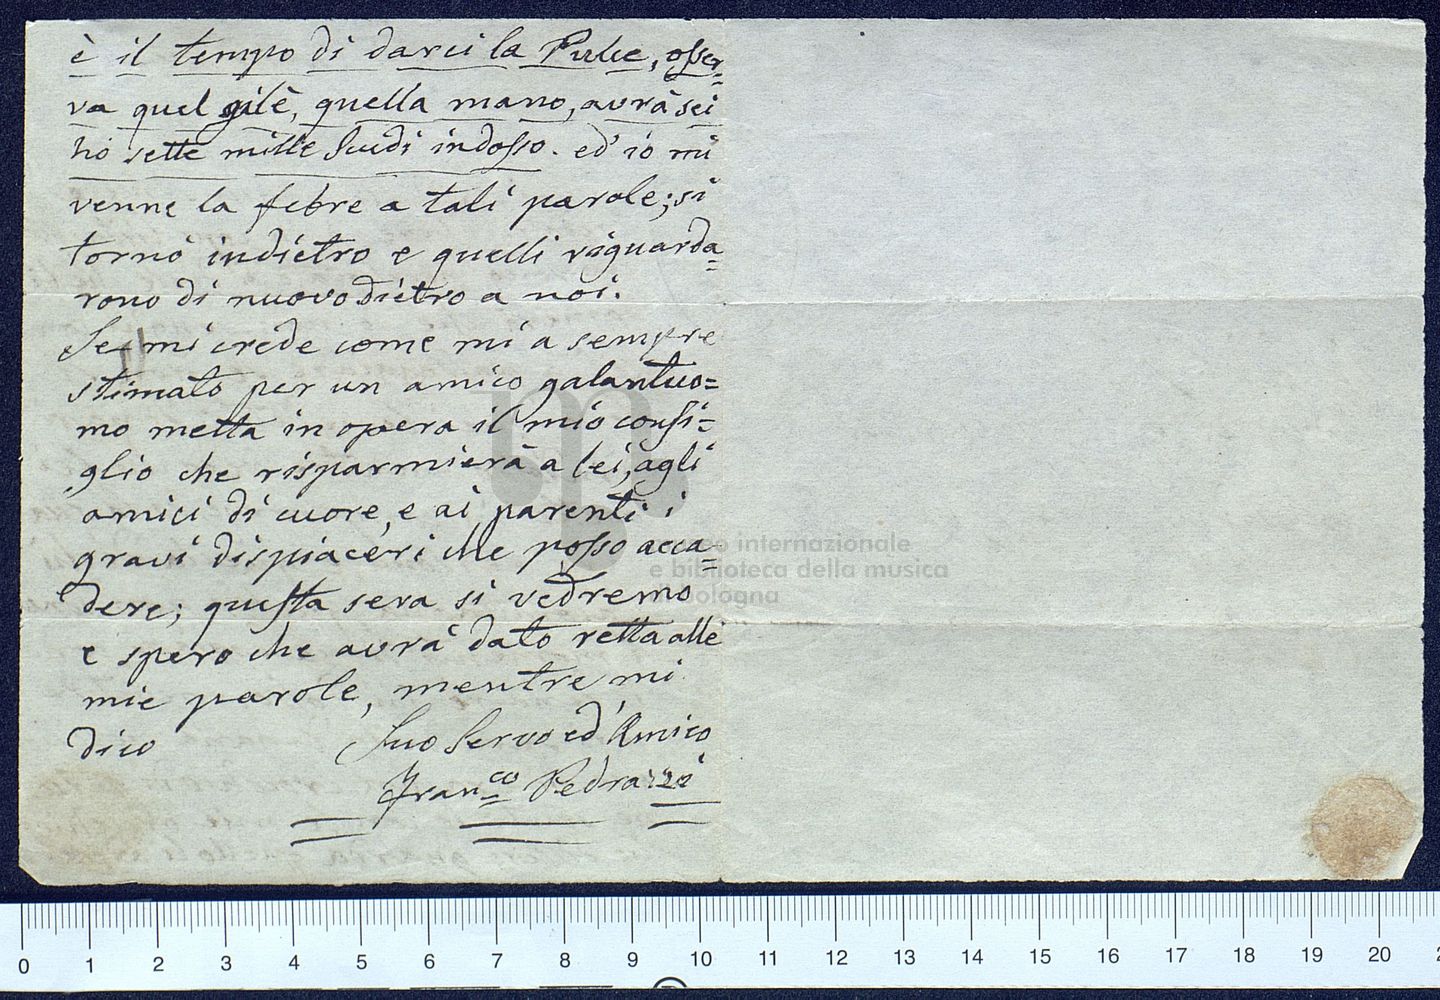 è il tempo di darci la Pulce, osser=
va quel gilè, quella mano, avrà sei
ho sette mille Scudi indosso. ed' io mi
venne la febre a tali parole; si
tornò indietro e quelli riguarda=
rono di nuovo dietro a noi.
Se mi crede come mi a sempre
stimato per un amico galantuo=
mo metta in opera il mio consi=
glio che risparmierà a lei, agli
amici di cuore, e ai parenti i
gravi dispiaceri che posso acca=
dere; questa sera si vedremo
e spero che avrà dato retta alle
mie parole, mentre mi
dico Suo Servo ed' Amico
Franco Pedrazzi
museo internazionale
e biblioteca della musica
di bologna
0 1 2 3 4 5 6 7 8 9 10 11 12 13 14 15 16 17 18 19 20